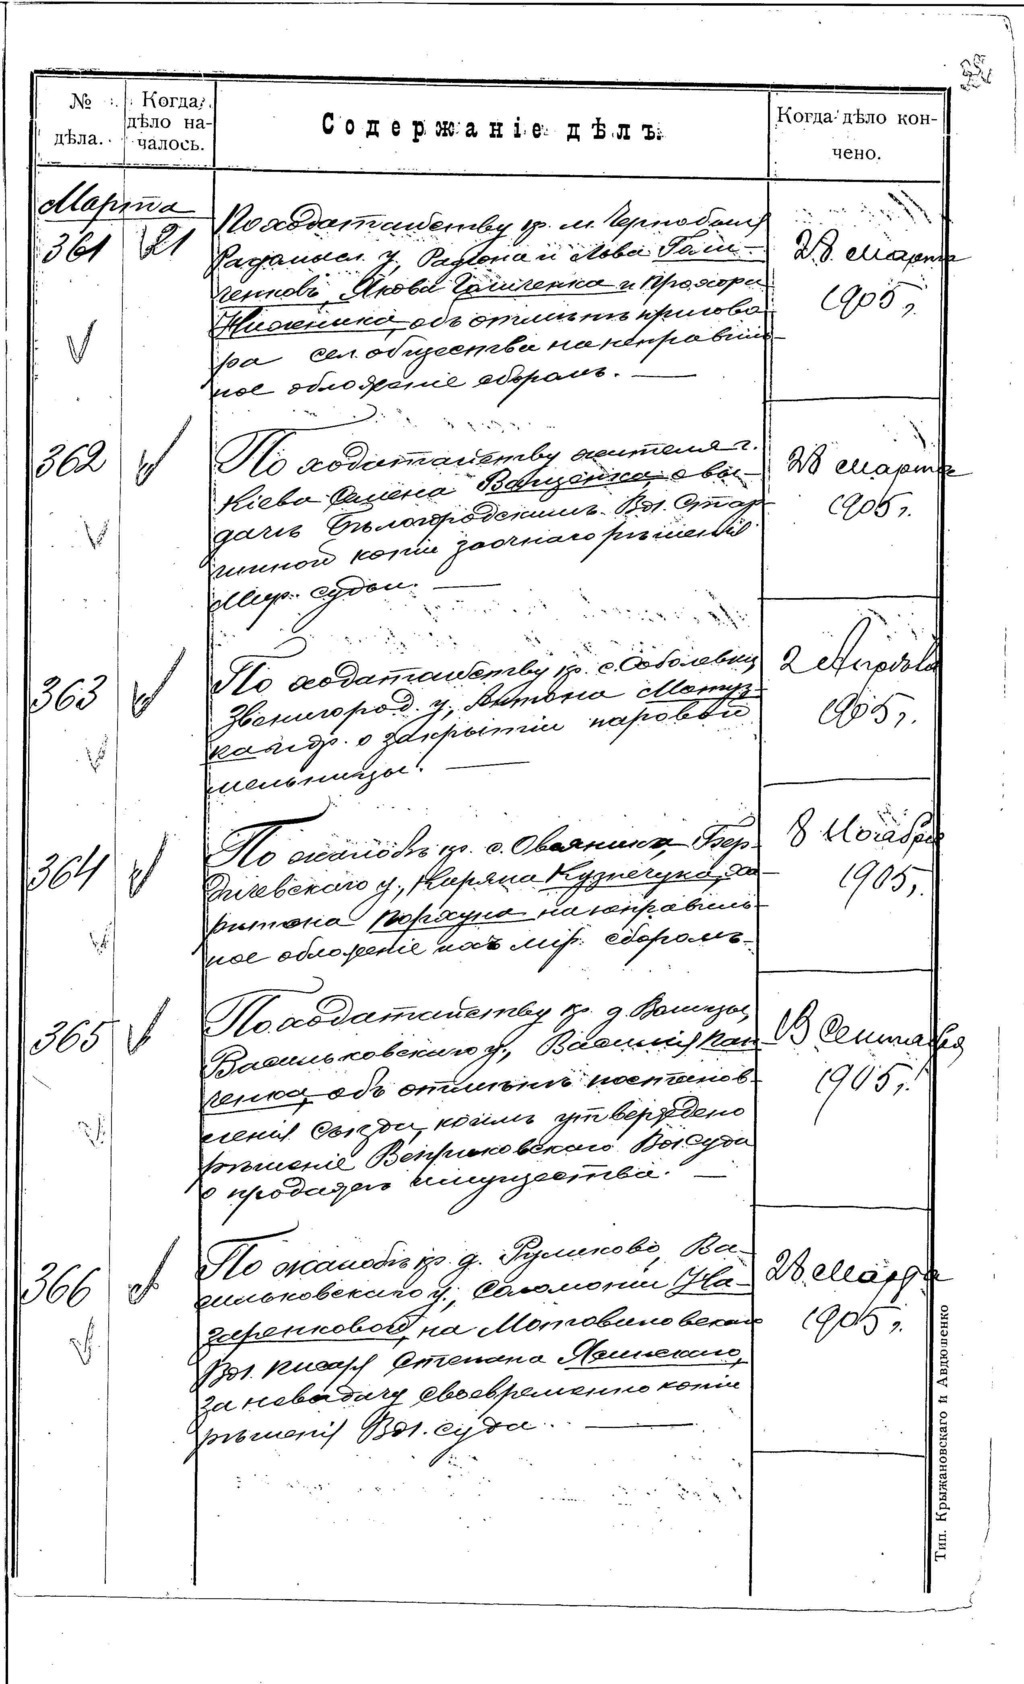 № дѣла.
Когда дѣло началось.
Содержаніе дѣлъ.
Когда дѣло кончено.
Марта
361 21
По ходатайству кр. м. Чернобыля
Радомысл. у,
ченковъ, Якова Гальченка и Прохора
объ отмѣнѣ пригово
ра сел. общества на неправиль
ное обложеніе сборамъ.
28 Марта
1905 г.
362
По ходатайству жителя г.
Кіева Семена Ващенка, о вы-
дачѣ Бѣлогородскимъ Вол. Стар
шиной копіи заочнаго рѣшенія
Мир. судьи.
28 Марта
1905 г.
363
По ходатайству кр. с. Соболевки
Звенигород. у, Антона Мотуз-
ка и др. о закрытіи паровой
мельницы.
2 Апрѣля
1905 г.
364
По жалобѣ кр. с. Бер-
дичевскаго у, Кузнечука, Ха-
ритона на неправиль
ное обложеніе ихъ мір. сборомъ
8 Ноября
1905 г.
365
По ходатайству кр. д. Волицы,
Васильковскаго у, Василія Пан
ченка, объ отмѣнѣ постанов-
ленія Съѣзда, коимъ утверждено
рѣшеніе Веприковскаго Вол. суда
о продажѣ имущества.
13 Сентября
1905 г.
366
По жалобѣ кр. д. Ва-
сильковскаго у, Соломоніи На-
заренковой, на Мотовиловскаго
Вол. писаря Степана Ясинскаго,
за невыдачу своевременно копіи
рѣшенія Вол. суда.
28 Марта
1905 г.
Тип. Крыжановскаго и Авдюшенко